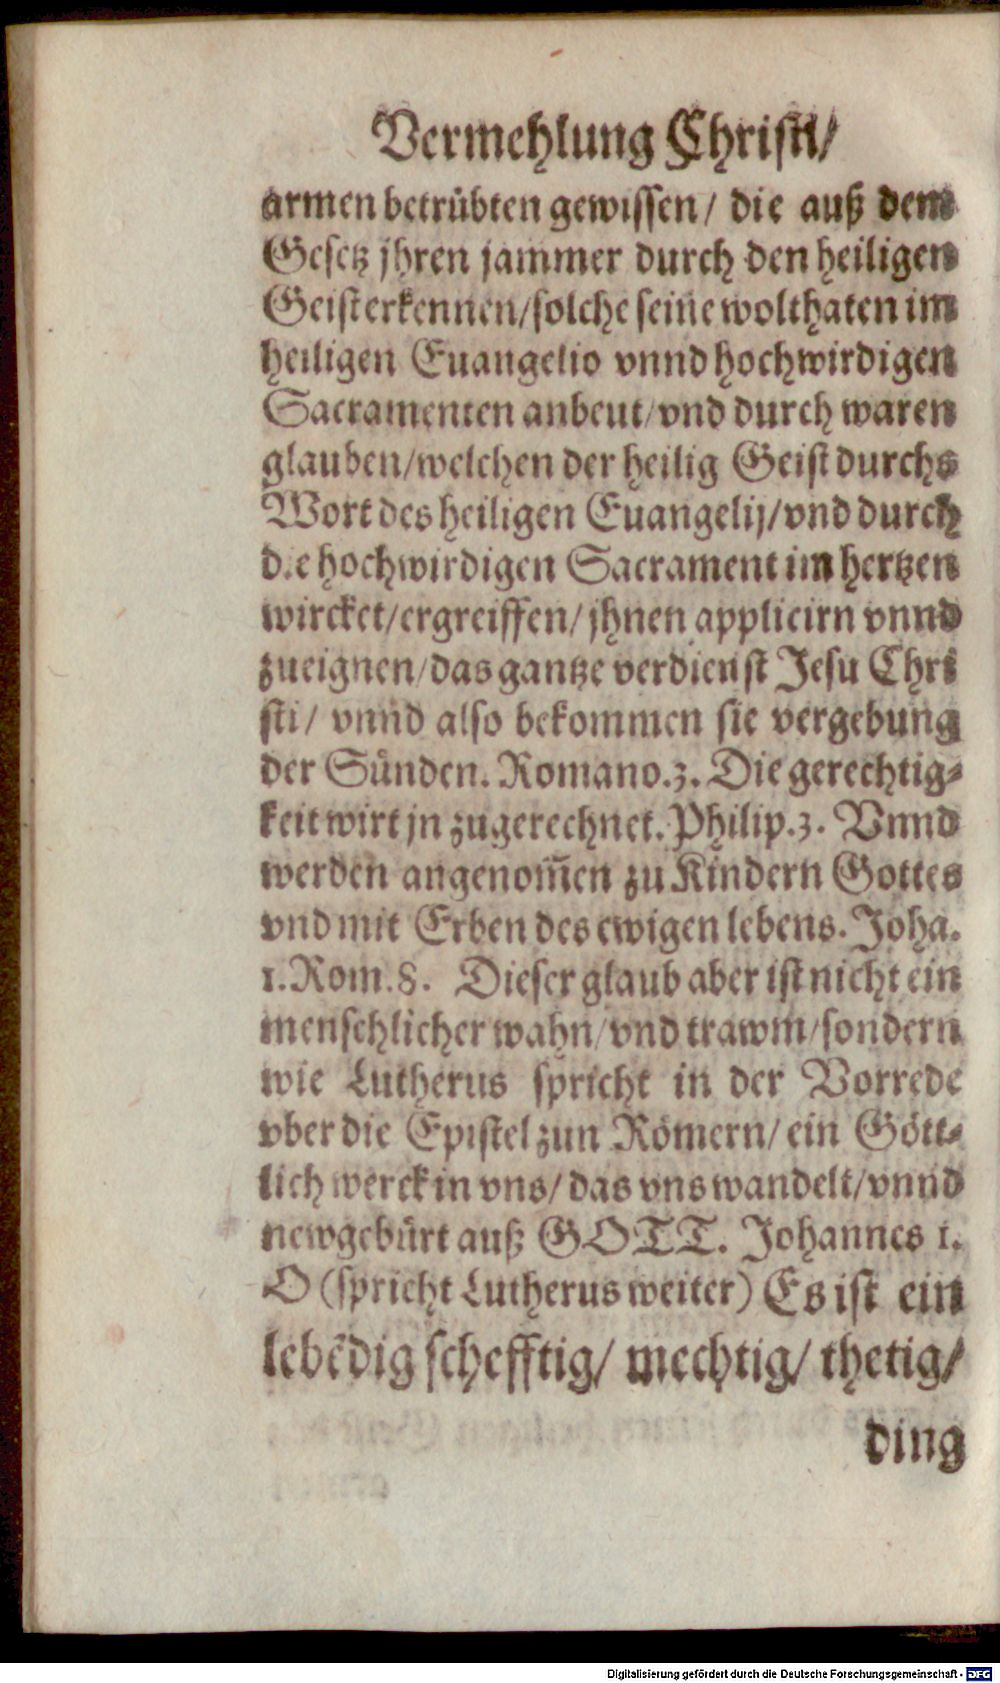 Vermehlung Christi/
armen betrübten gewissen/ die auß dem
Gesetz jhren jammer durch den heiligen
Geist erkennen/solche seine wolthaten im
heiligen Euangelio vnnd hochwirdigen
Sacramenten anbeut/vnd durch waren
glauben/welchen der heilig Geist durchs
Wort des heiligen Euangelij/vnd durch
die hochwirdigen Sacrament im hertzen
wircket/ergreiffen/jhnen applicirn vnnd
zueignen/das gantze verdienst Jesu Chri
sti/ vnnd also bekommen sie vergebung
der Sünden. Romano.3. Die gerechtig-
keit wirt jn zugerechnet. Philip.3. Vnnd
werden angenom̃en zu Kindern Gottes
vnd mit Erben des ewigen lebens. Joha.
1.Rom.8. Dieser glaub aber ist nicht ein
menschlicher wahn/vnd trawm/sondern
wie Lutherus spricht in der Vorrede
vber die Epistel zun Römern/ein Gött-
lich werck in vns/das vns wandelt/vnnd
newgebürt auß GOTT. Johannes 1.
O (spricht Lutherus weiter) Es ist ein
lebẽdig schefftig/ mechtig/ thetig/
ding
Digitalisierung gefördert durch die Deutsche Forschungsgemeinschaft - DFG